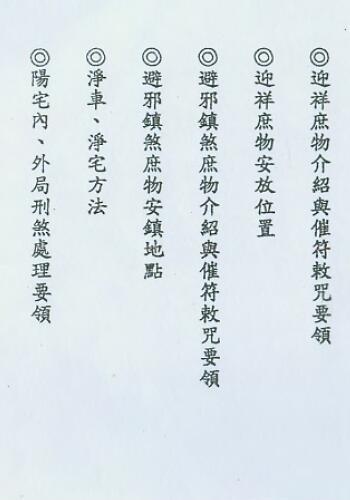 ◎迎祥庶物介紹與催符敕咒要領
◎迎祥庶物安放位置
◎避邪鎮煞庶物介紹與催符敕咒要領
◎避邪鎮煞庶物安鎮地點
◎淨車、淨宅方法
◎陽宅內、外局刑煞處理要領